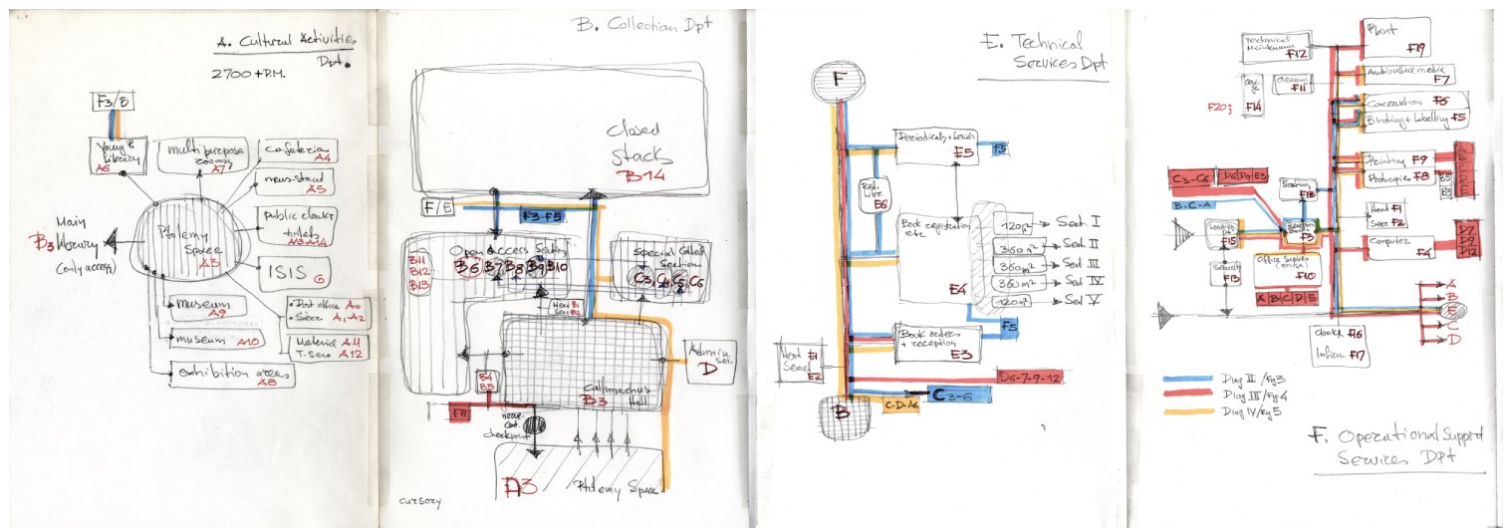 A. Cultural Activities
Dpt.
2700 + P.M.
F3/E
Young P.
Library
A6
multi purpose
rooms
A7
cafeteria
A4
news-stand
A5
public cloakr
toilets
A13-A14
ISIS
G
Main
library
B3
(only access)
Ptolemy
Space
A3
museum
A9
museum A10
exhibition areas
A8
• Post office A0
• Secr A1, A2
Material A11
T. Serv A12
B. Collection Dpt
closed
stacks
B14
F/E
F3-F5
B11
B12
B13
Open Access Section
B6 B7 B8 B9 B10
Special Collect
Section
C3, C4, C5, C6
Head B1
Secr B2
B4
B5
Callimachus
Hall
B3
Admin. Sec.
D
F8
checkpoint
A3
Ptolemy Space
cursory
E. Technical
Services Dpt
F
Periodicals + Serials
E5
F5
E6
Book registration
etc.
E4
120 m²
Sect. I
360 m²
Sect. II
360 m²
Sect III
360 m²
Sect IV
120 m²
Sect V
F5
Book orders
+ reception
E3
Head E1
Secret E2
D5-7-9-12
C3-6
C-D-A6
B
Technical
Maintenance
F12
Plant
F19
Audiovisual media
F7
Cleaning
F11
F20;
F14
Conservation F6
Binding + Labelling F5
Printing F9
Photocopies F8
A
B
C
D
E
B5
B9
C3-C6
D5 D9 E3
B-C-A
F18
Head F1
Secr F2
Loading
F15
F3
Computer
F4
D7
D9
D12
Security
F13
Office Supplies
F10
A B C D E
A
B
E
C
D
Cloakr F16
Inform F17
Diag II / Fig 3
Diag III / Fig 4
Diag IV / Fig 5
F. Operational Support
Services Dpt